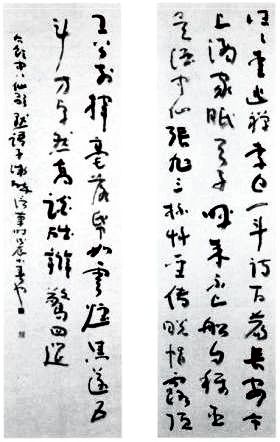 往往愛逃禅李白一斗诗百篇長安市
上酒家眠天子呼来不上船自称臣
是酒中仙張旭三杯草聖傳脱帽露頂
王公前揮毫落紙如雲煙焦遂五
斗方卓然高談雄辯驚四筵
飲中八仙歌